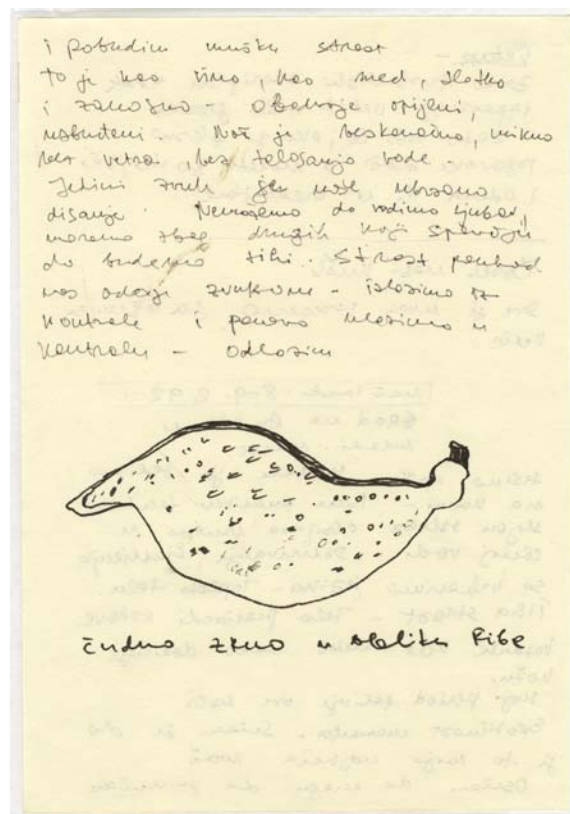 i pobudim mušku strast
To je kao vino, kao med, slatko
i zanosno – obadvoje opijeni,
nabuđeni. Noć je beskonačna, mirna
bez vetra, bez talasanja vode.
Jedini zvuk je naše ubrzano
disanje. Nemožemo da vodimo ljubav,
moramo zbog drugih koji spavaju
da budemo tihi. Strast ponekad
nas odaje zvukom – izlazimo iz
kontrole i ponovo ulazimo u
kontrolu – odlazim
čudno zrno u obliku ribe